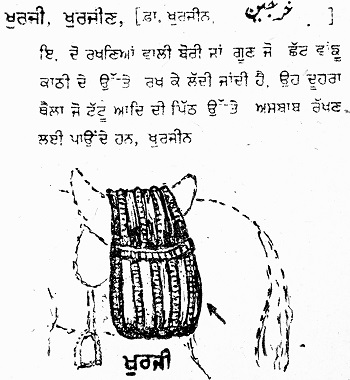 ਖੁਰਜੀ, ਖੁਰਜੀਣ, [ਫ਼ਾ. ਖੁਰਜੀਨ. خرجین ]
ਇ. ਦੋ ਰਖਣਿਆਂ ਵਾਲੀ ਬੋਰੀ ਜਾਂ ਗੂਣ ਜੋ ਛੱਟ ਵਾਂਙੂ
ਕਾਠੀ ਦੇ ਉੱਤੇ ਰਖ ਕੇ ਲੱਦੀ ਜਾਂਦੀ ਹੈ. ਉਹ ਦੂਹਰਾ
ਥੈਲਾ ਜੋ ਟੱਟੂ ਆਦਿ ਦੀ ਪਿੱਠ ਉੱਤੇ ਅਸਬਾਬ ਰੱਖਣ
ਲਈ ਪਾਉਂਦੇ ਹਨ, ਖੁਰਜੀਨ
ਖੁਰਜੀ